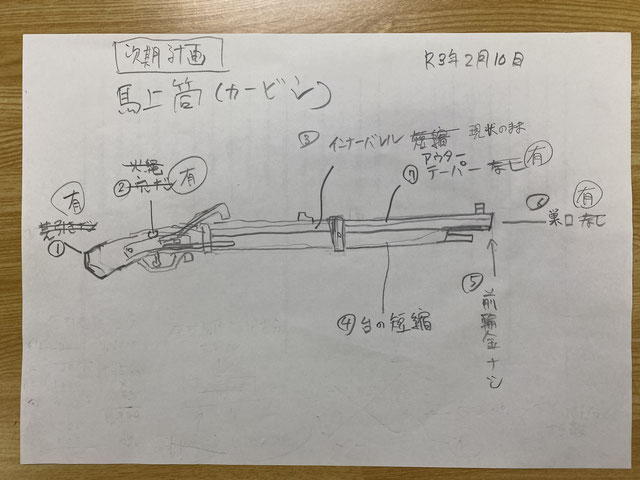 次期計画
R3年2月10日
馬上筒(カービン)
③ インナーバレル 短縮 現状のまま
火縄
② 有
⑦ アウター
テーパー なし 有
有
①
⑥ 有
巣口 なし
④ 台の短縮
⑤ 前
輪
金
ナ
シ